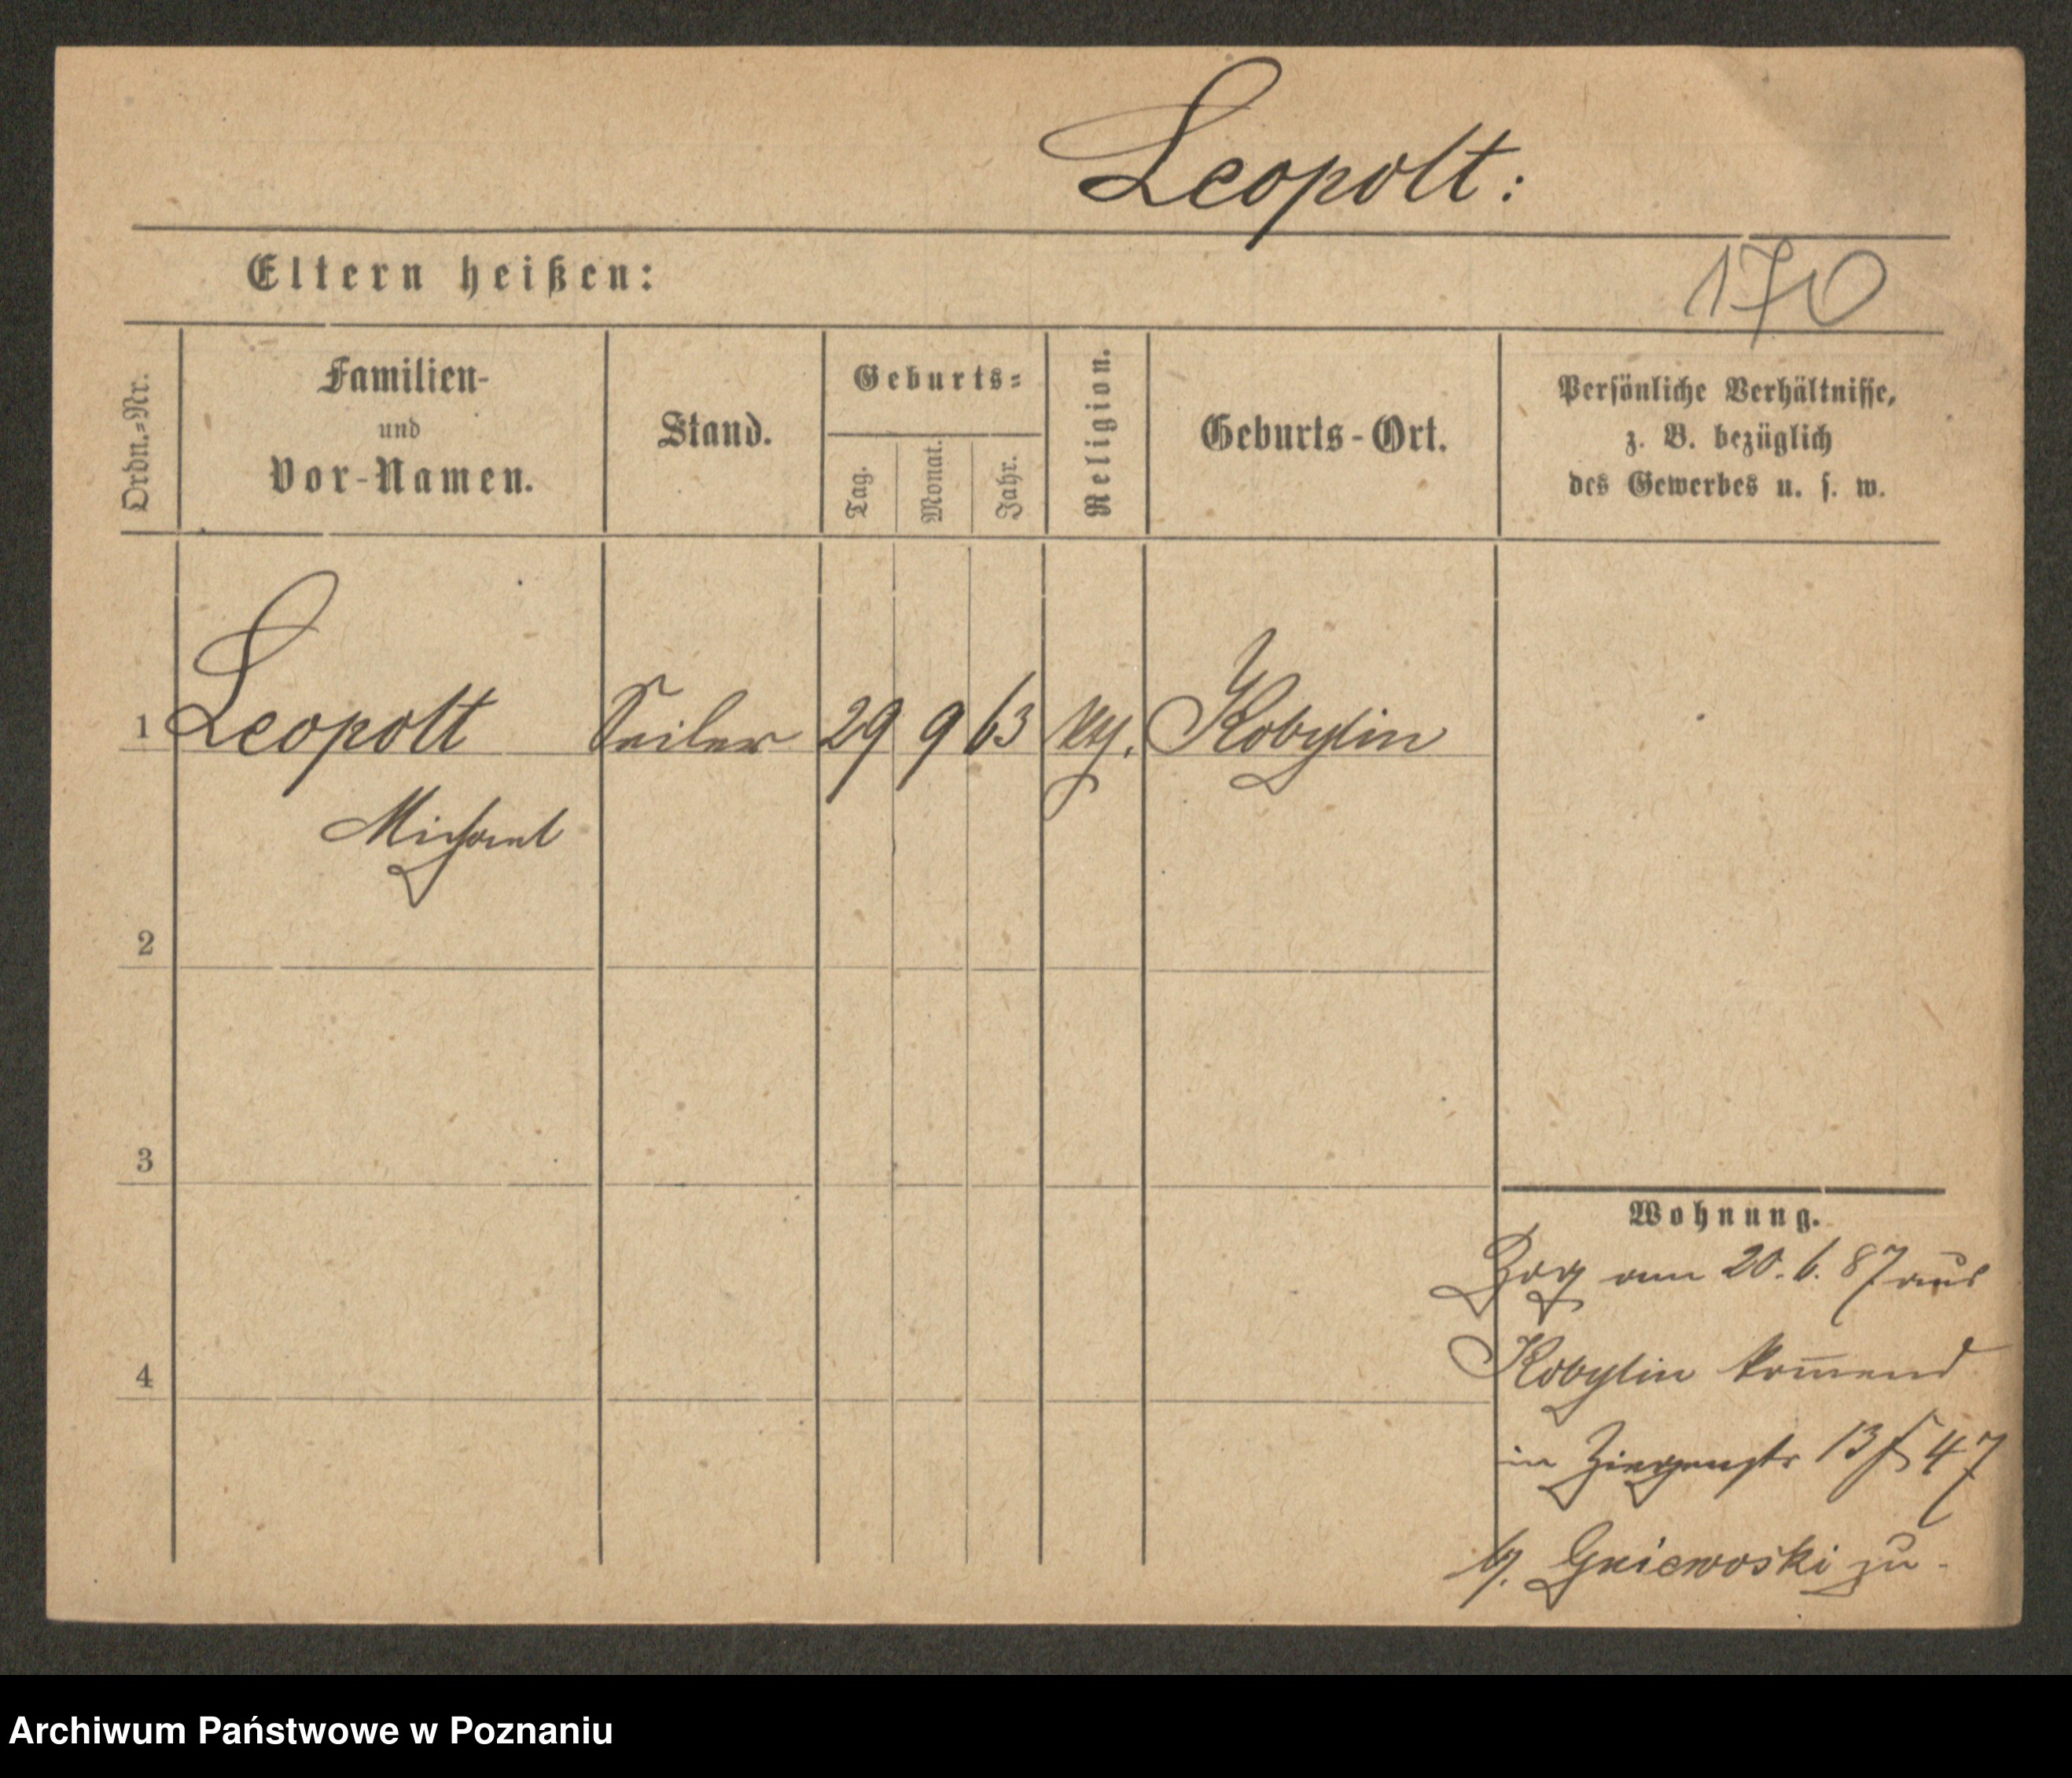 Leopolt:
Eltern heißen:
170
Ordn.=Nr.
Familien-
und
Vor-Namen.
Stand.
Geburts=
Tag.
Monat.
Jahr.
Religion.
Geburts-Ort.
Persönliche Verhältnisse,
z. B. bezüglich
des Gewerbes u. s. w.
1 Leopolt Seiler 29 9 63 Kobylin
Michael
2
3
4
Wohnung.
Zog am 20. 6. 87 aus
Kobylin kom̅end
in Ziegenstr 47
Gniewoski zu-
Archiwum Państwowe w Poznaniu